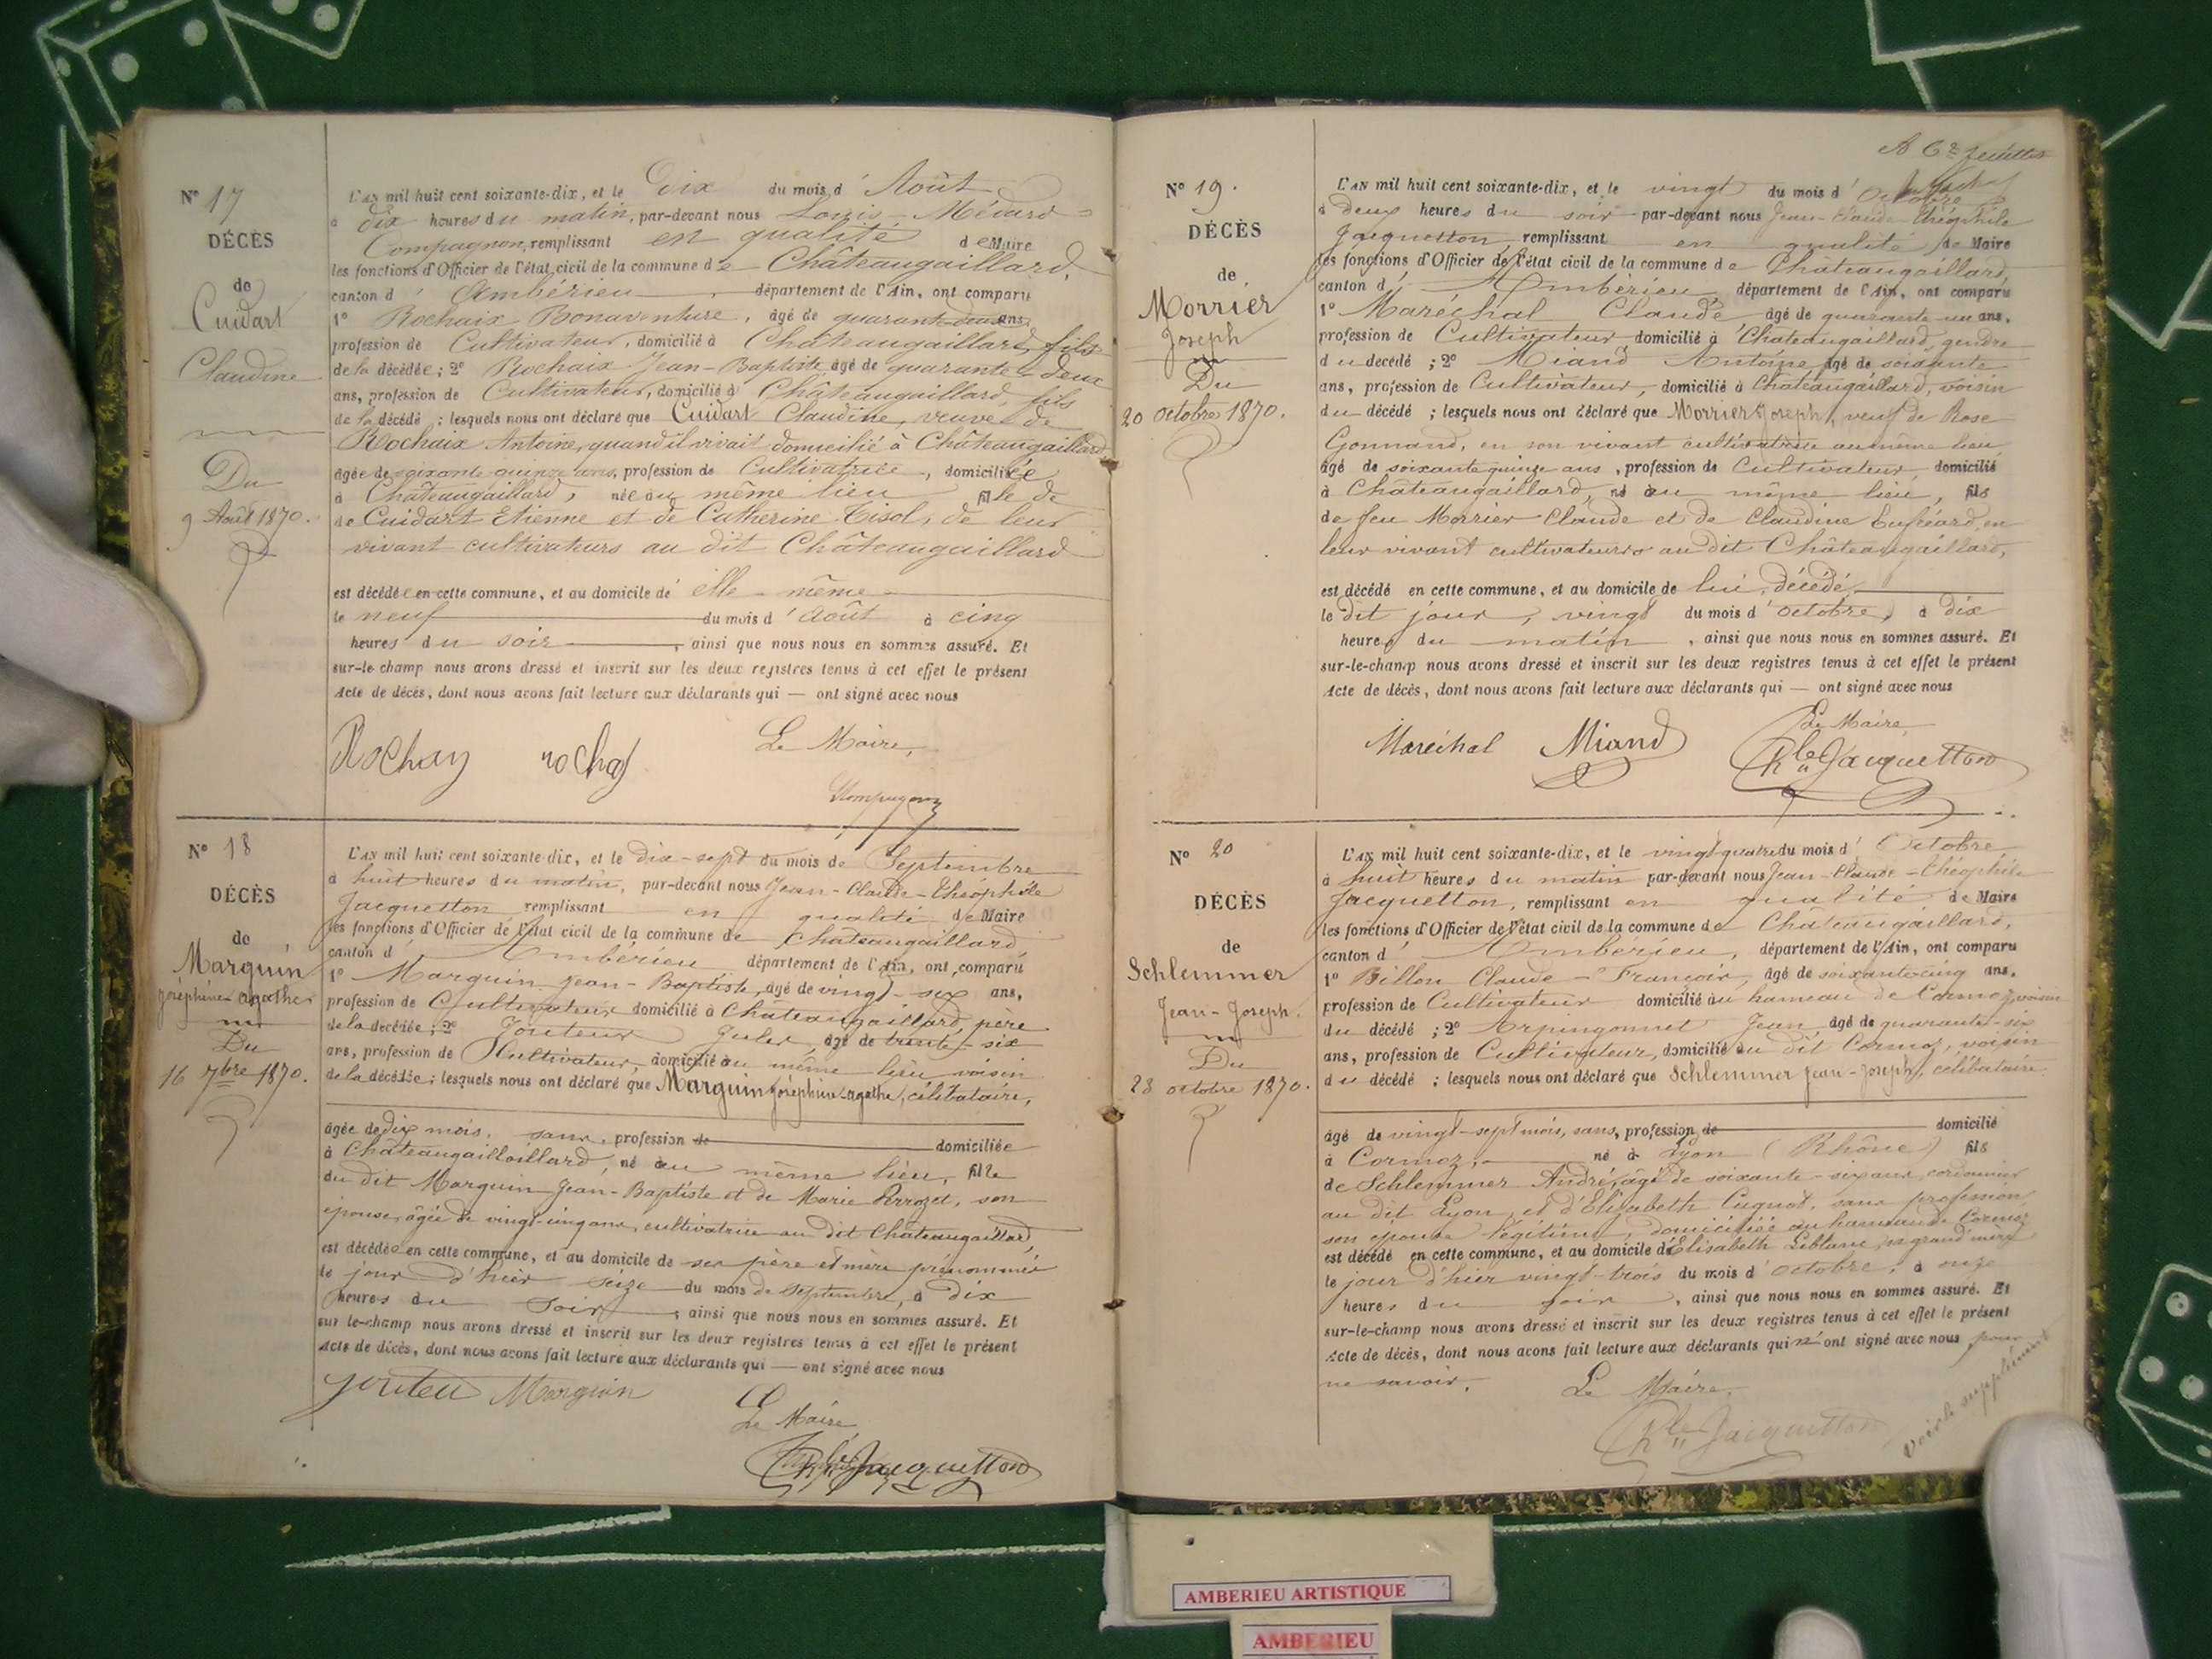 N° 17
DÉCÈS
de
Cuidart
Claudine
Du
9 Août 1870.
L'AN mil huit cent soixante-dix, et le Dix du mois d' Août
à dix heures du matin, par-devant nous Louis-Médard
Compagnon, remplissant en qualité de Maire
les fonctions d'Officier de l'état civil de la commune de Châteaugaillard,
canton d' Ambérieu, département de l'Ain, ont comparu
1° Rochaix Bonaventure, âgé de quarante-deux ans,
profession de Cultivateur, domicilié à Châteaugaillard, fils
de la décédée; 2° Rochaix Jean-Baptiste âgé de quarante-deux
ans, profession de Cultivateur, domicilié à Châteaugaillard, fils
de la décédé; lesquels nous ont déclaré que Cuidart Claudine, veuve de
Rochaix Antoine, quand il vivait domicilié à Châteaugaillard
âgée de soixante quinze ans, profession de Cultivatrice, domiciliée
à Châteaugaillard, née au même lieu fille de
de Cuidart Etienne et de Catherine Tisol, de leur
vivant cultivateurs au dit Châteaugaillard
est décédée en cette commune, et au domicile de elle-même
le neuf du mois d' Août à cinq
heures du soir, ainsi que nous nous en sommes assuré. Et
sur-le-champ nous avons dressé et inscrit sur les deux registres tenus à cet effet le présent
Acte de décès, dont nous avons fait lecture aux déclarants qui — ont signé avec nous
Rochay rochaj Le Maire,
Compagnon
N° 18
DÉCÈS
de
Marguin
Joséphine-agathe
Du
16 7bre 1870.
L'AN mil huit cent soixante-dix, et le dix-sept du mois de Septembre
à huit heures du matin, par-devant nous Jean-Claude-Théophile
Jacquetton remplissant en qualité de Maire
les fonctions d'Officier de l'état civil de la commune de Châteaugaillard
canton d' Ambérieu département de l'Ain, ont comparu
1° Marguin Jean-Baptiste, âgé de vingt-six ans,
profession de Cultivateur domicilié à Châteaugaillard, père
de la décédée; 2° Jouteur Jules, âgé de trente-six
ans, profession de Cultivateur, domicilié au même lieu voisin
de la décédée; lesquels nous ont déclaré que Marguin Joséphine-agathe, célibataire,
âgée de dix mois, sans, profession de domiciliée
à Châteaugailloillard, né au même lieu, fille
du dit Marguin Jean-Baptiste et de Marie Perrozet, son
épouse, âgée de vingt-cinq ans, cultivatrice au dit Châteaugaillard,
est décédée en cette commune, et au domicile de ses père et mère prénommés
le jour d'hier seize du mois de Septembre, à dix
heures du soir, ainsi que nous nous en sommes assuré. Et
sur le-champ nous avons dressé et inscrit sur les deux registres tenus à cet effet le présent
Acte de décès, dont nous avons fait lecture aux déclarants qui — ont signé avec nous
Marguin
Le Maire
Jacquetton
N° 19.
DÉCÈS
de
Morrier
Joseph
Du
20 octobre 1870.
L'AN mil huit cent soixante-dix, et le vingt du mois d' Octobre
à deux heures du soir par-devant nous Jean-Claude Théophile
Jacquetton remplissant en qualité de Maire
les fonctions d'Officier de l'état civil de la commune de Châteaugaillard,
canton d' Ambérieu département de l'Ain, ont comparu
1° Maréchal Claude âgé de quarante un ans,
profession de Cultivateur domicilié à Châteaugaillard, gendre
du décédé; 2° Miand Antoine, âgé de soixante
ans, profession de Cultivateur, domicilié à Châteaugaillard, voisin
du décédé; lesquels nous ont déclaré que Morrier Joseph, veuf de Rose
Gonnand, en son vivant cultivatrice au même lieu
âgé de soixante quinze ans, profession de Cultivateur domicilié
à Châteaugaillard, né au même lieu, fils
de feu Morrier Claude et de Claudine en
leur vivant cultivateurs au dit Châteaugaillard,
est décédé en cette commune, et au domicile de lui, décédé,
le dit jour, vingt du mois d' octobre, à dix
heures du matin, ainsi que nous nous en sommes assuré. Et
sur-le-champ nous avons dressé et inscrit sur les deux registres tenus à cet effet le présent
Acte de décès, dont nous avons fait lecture aux déclarants qui — ont signé avec nous
Le Maire,
Maréchal Miand Jacquetton
N° 20
DÉCÈS
de
Schlemmer
Jean-Joseph.
Du
23 octobre 1870.
L'AN mil huit cent soixante-dix, et le vingt-quatre du mois d' Octobre
à huit heures du matin par-devant nous Jean-Claude-Théophile
Jacquetton, remplissant en qualité de Maire
les fonctions d'Officier de l'état civil de la commune de Châteaugaillard,
canton d' Ambérieu, département de l'Ain, ont comparu
1° Billon Claude-François, âgé de soixante-cinq ans,
profession de Cultivateur domicilié au hameau de Cormoz, voisin
du décédé; 2° Arpingonnet Jean, âgé de quarante-six
ans, profession de Cultivateur, domicilié au dit Cormoz, voisin
du décédé; lesquels nous ont déclaré que Schlemmer Jean-Joseph, célibataire
âgé de vingt-sept mois, sans, profession de domicilié
à Cormoz, né à Lyon (Rhône) fils
de Schlemmer André, âgé de soixante-six ans, cordonnier
au dit Lyon et d'Elisabeth Cugnot, sans profession
son épouse légitime, domiciliée au hameau de Cormoz
est décédé en cette commune, et au domicile d'Elisabeth Leblanc, sa grand'mère
le jour d'hier vingt-trois du mois d' octobre, à onze
heures du soir, ainsi que nous nous en sommes assuré. Et
sur-le-champ nous avons dressé et inscrit sur les deux registres tenus à cet effet le présent
Acte de décès, dont nous avons fait lecture aux déclarants qui n'ont signé avec nous pour
ne savoir. Le Maire,
Jacquetton
AMBERIEU ARTISTIQUE
AMBERIEU